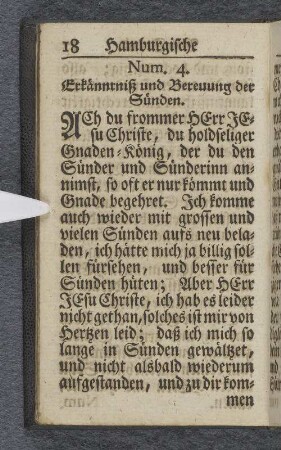 18 Hamburgische
Num. 4.
Erkänntniß und Bereuung der
Sünden.
ACh du frommer HErr JE-
su Christe, du holdseliger
Gnaden-König, der du den
Sünder und Sünderinn an-
nimst, so oft er nur kömmt und
Gnade begehret. Ich komme
auch wieder mit grossen und
vielen Sünden aufs neu bela-
den, ich hätte mich ja billig sol-
len fürsehen, und besser für
Sünden hüten; Aber HErr
JEsu Christe, ich hab es leider
nicht gethan, solches ist mir von
Hertzen leid; daß ich mich so
lange in Sünden gewältzet,
und nicht alsbald wiederum
aufgestanden, und zu dir kom-
men